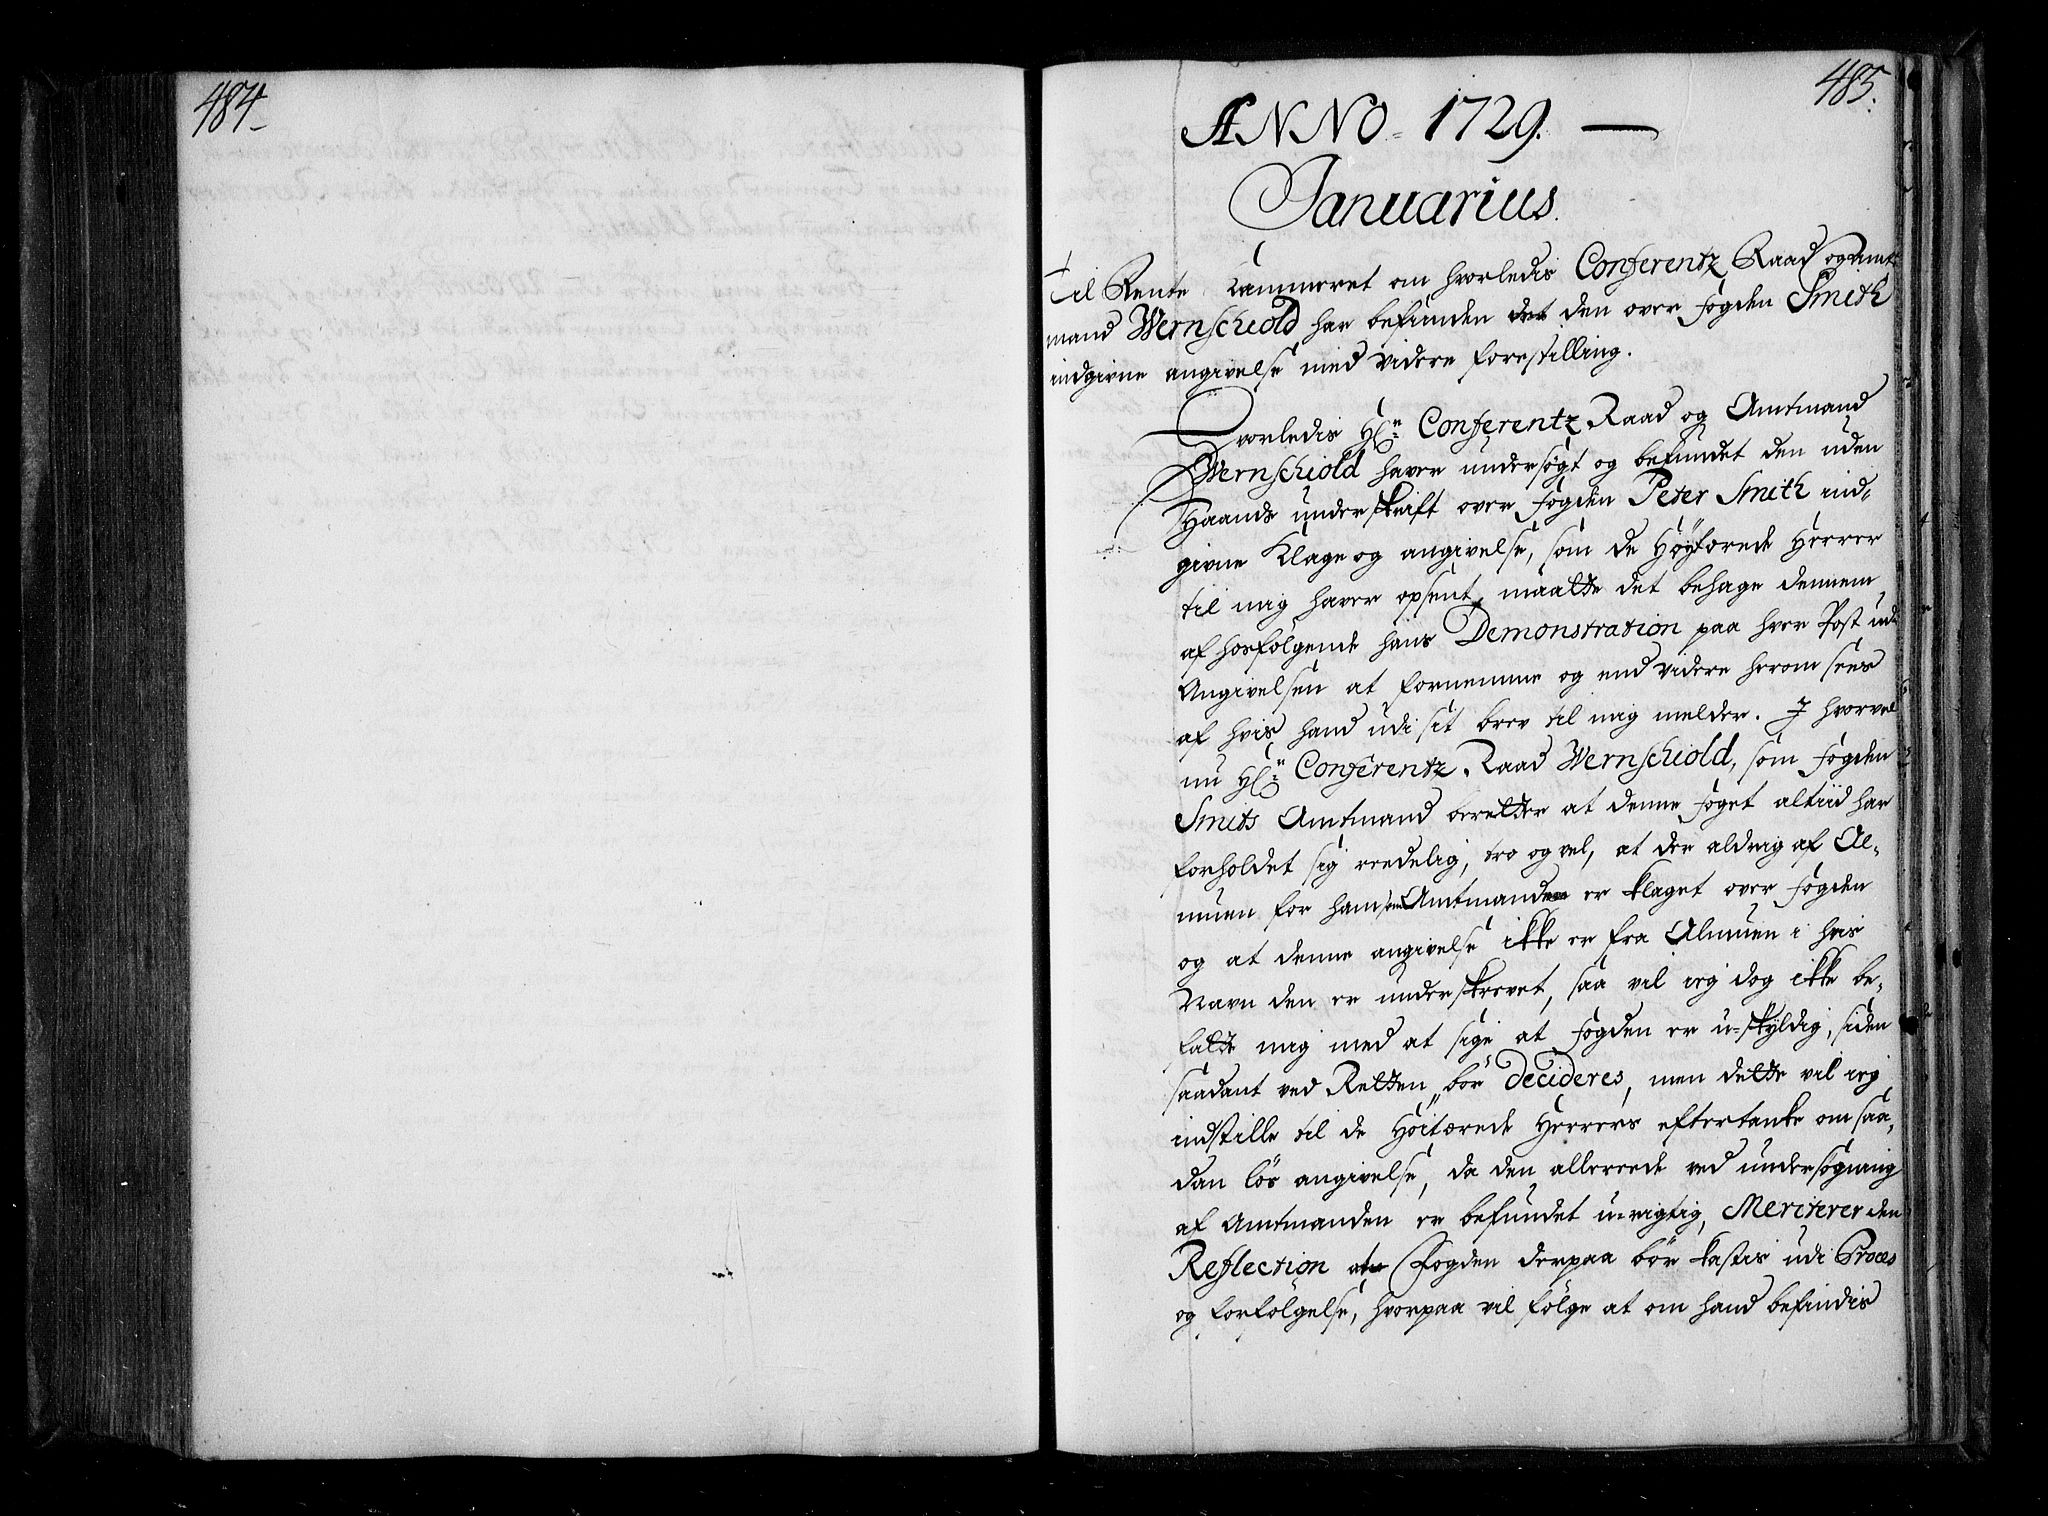 484
485.
ANNO 1729.
Januarius.
Til Rente Cammeret om hvorledis Conferentz Raad og Amt
mand Wernschiold har befunden den over fogden Smith
indgivne angivelse med videre forestilling.
Hvorledis Hrn Conferentz Raad og Amtmand
Wernschiold haver undersøgt og befundet den uden
Haands underskrift over fogden Peter Smith ind,
givne Klage og angivelse, som de Høytærede Herrer
til mig haver opsent, maatte det behage dennem
af hosfølgende hans Demonstration paa hver Post udi
Angivelsen at fornemme og end videre herom sees
af hvis hand udi sit brev til mig melder. I hvorvel
nu Hrn Conferentz Raad Wernschiold, som fogden
Smits Amtmand beretter at denne foget altiid har
forholdet sig reedelig, tro og vel, at der aldrig af Al,
muen for ham som Amtmand er klaget over fogden
og at denne angivelse ikke er fra Almuen i hvis
Navn den er underskrevet, saa vil ieg dog ikke be,
fatte mig med at sige at fogden er u-skyldig, siden
saadant ved Retten bør decideres, men dette vil ieg
indstille til de Høitærede Herrers eftertanke om saa,
dan løs angivelse, da den allereede ved undersøgning
af Amtmanden er befundet u-rigtig, Meriterer den
Reflection at Fogden derpaa bør kastis udi Proces
og forfølgelse, hvorpaa vil følge at om hand befindis